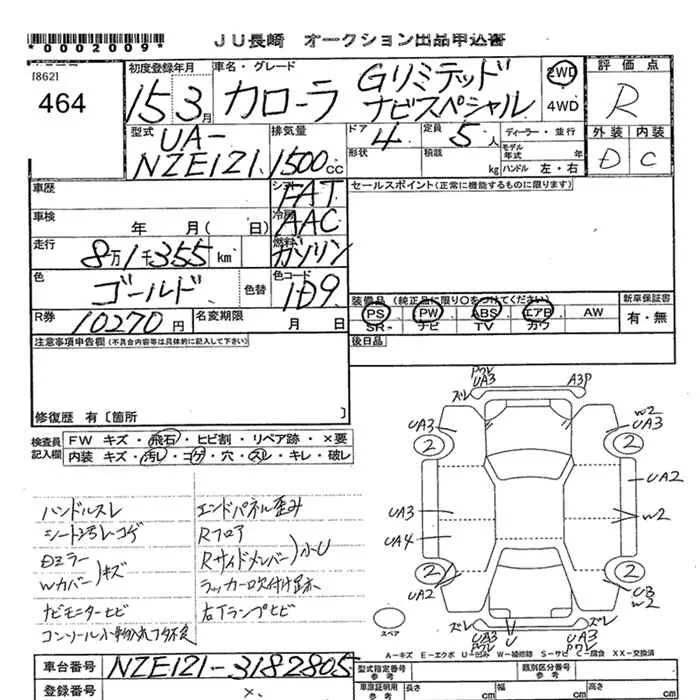 *0002009*
JU長崎 オークション出品申込書
[862]
464
初度登録年月
15年 3月
車名・グレード
カローラ
Gリミテッド
ナビスペシャル
2WD
4WD
評価点
R
外装 内装
D C
型式
UA-
NZE121
排気量
1500cc
ドア
4
定員
5人
形状
積載
kg
ディーラー・並行
モデル年式 年
ハンドル 左・右
車歴
シフト
FAT
セールスポイント(正常に機能するものに限ります)
車検
年 月( 日)
冷房
AAC
走行
8万1千355km
燃料
ガソリン
色
ゴールド
色替
色コード
1D9
装備品 (純正品に限り○をつけてください)
新車保証書
PS PW ABS エアB AW
有・無
SR ナビ TV カワ
R券
10270円
名変期限
月 日
後日品
注意事項申告欄(不具合内容等は具体的に記入して下さい)
修復歴 有〔箇所 〕
検査員記入欄
FW キズ・飛石・ヒビ割・リペア跡・×要
内装 キズ・汚レ・コゲ・穴・スレ・キレ・破レ
ハンドルスレ
シート汚レコゲ
Dミラー
Wカバー)キズ
ナビモニターヒビ
エンドパネル歪み
Rフロア
Rサイドメンバー)小U
ラッカー吹付け跡
右Tランプヒビ
ズレ
ワレ
UA3
A3P
ズレ
UA3
2
W2
UA3
2
UA2
UA3
W2
UA4
2
UA2
2
UB
W2
ズレ
UA3
ワレ
U
UA3
ワレ
ズレ
スペア
A-キズ E-エクボ U-凹み W-補修跡 S-サビ C-腐食 XX-交換済
車台番号
NZE121-3182805
型式指定番号
参考
類別区分番号
参考
登録番号
×.
車庫証明用
参考
長さ cm
幅 cm
高さ cm